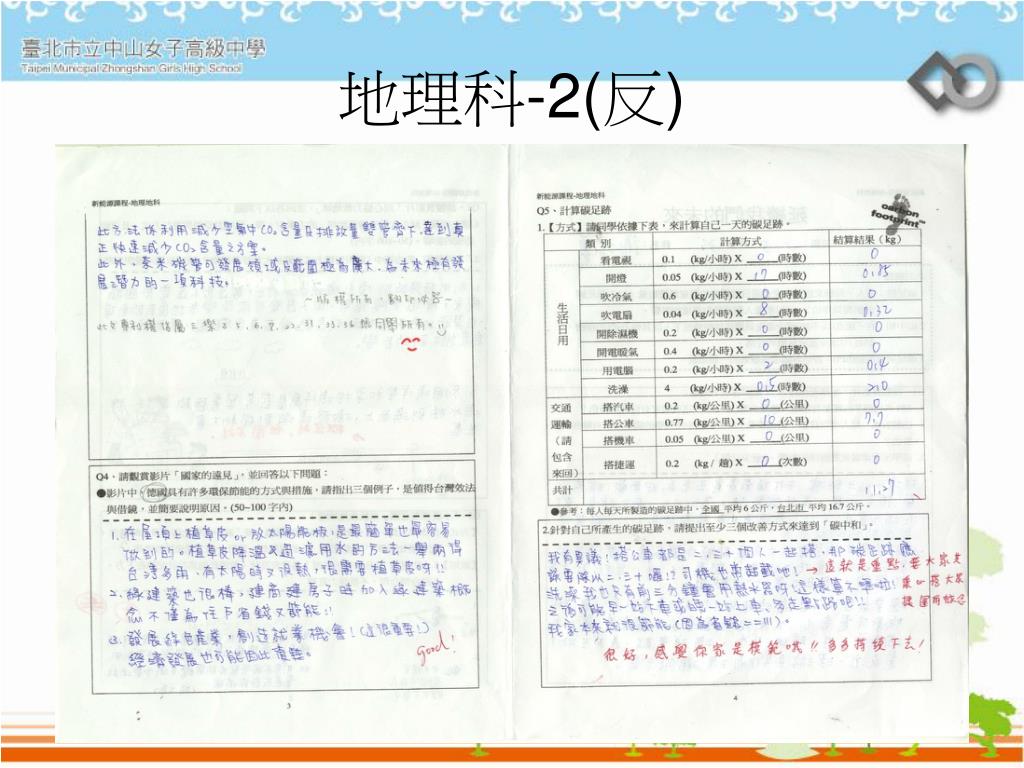 臺北市立中山女子高級中學
Taipei Municipal Zhongshan Girls High School
地理科-2(反)
新能源課程-地理地科
此方法係利用減少空氣中CO₂含量及排放量雙管齊下,達到真
正快速減少CO₂含量之方案。
此外,奈米機器可發展領域及範圍極為廣大,為未來極有發
展潛力的一項科技。
~版權所有,翻印必究~
Q4、請觀賞影片「國家的遠見」,並回答以下問題:
●影片中,德國具有許多環保節能的方式與措施,請指出三個例子,是值得台灣效法
與借鏡,並簡要說明原因。(50~100 字內)
1. 在屋頂上植草皮 or 放太陽能板,是最簡單也最容易
做到的。植草皮降溫又過濾用水的方法一舉兩得
台灣多雨,有太陽時又很熱,很需要植草皮呀!!
2. 綠建築也很棒,建商建房子時加入綠建築概
念不僅為住戶省錢又節能!!
3. 發展綠色產業,創造就業機會!(這很重要!)
經濟發展也可能因此復甦。
good!
3
新能源課程-地理地科
carbon footprint™
Q5、計算碳足跡
1.【方式】請同學依據下表,來計算自己一天的碳足跡。
類 別 計算方式 結算結果(kg)
生活日用
看電視 0.1 (kg/小時) X 0 (時數) 0
開燈 0.05 (kg/小時) X 17 (時數) 0.85
吹冷氣 0.6 (kg/小時) X 0 (時數) 0
吹電扇 0.04 (kg/小時) X 8 (時數) 0.32
開除濕機 0.2 (kg/小時) X 0 (時數) 0
開電暖氣 0.4 (kg/小時) X 0 (時數) 0
用電腦 0.2 (kg/小時) X 2 (時數) 0.4
洗澡 4 (kg/小時) X 0.5 (時數) 2.0
交通運輸(請包含來回)
搭汽車 0.2 (kg/公里) X 0 (公里) 0
搭公車 0.77 (kg/公里) X 10 (公里) 7.7
搭機車 0.05 (kg/公里) X 0 (公里) 0
搭捷運 0.2 (kg / 趟) X 0 (次數) 0
共計 11.27
●參考:每人每天所製造的碳足跡中,全國 平均 6 公斤,台北市 平均 16.7 公斤。
2.針對自己所產生的碳足跡,請提出至少三個改善方式來達到「碳中和」。
我有異議!搭公車都是二、三十個人一起搭,那碳足跡應
該要除以二、三十喔!? 司機也常超載吧!
→ 這就是重點,要大家共
洗澡我也只有前三分鐘會用熱水器呀!這樣算不準啦!
之後可能早一站下車或晚一站上車,多走點路吧!!
我家本來就很節能(因為省錢==!!!)。
很好,感恩你家是模範唷!! 多多持續下去!
4